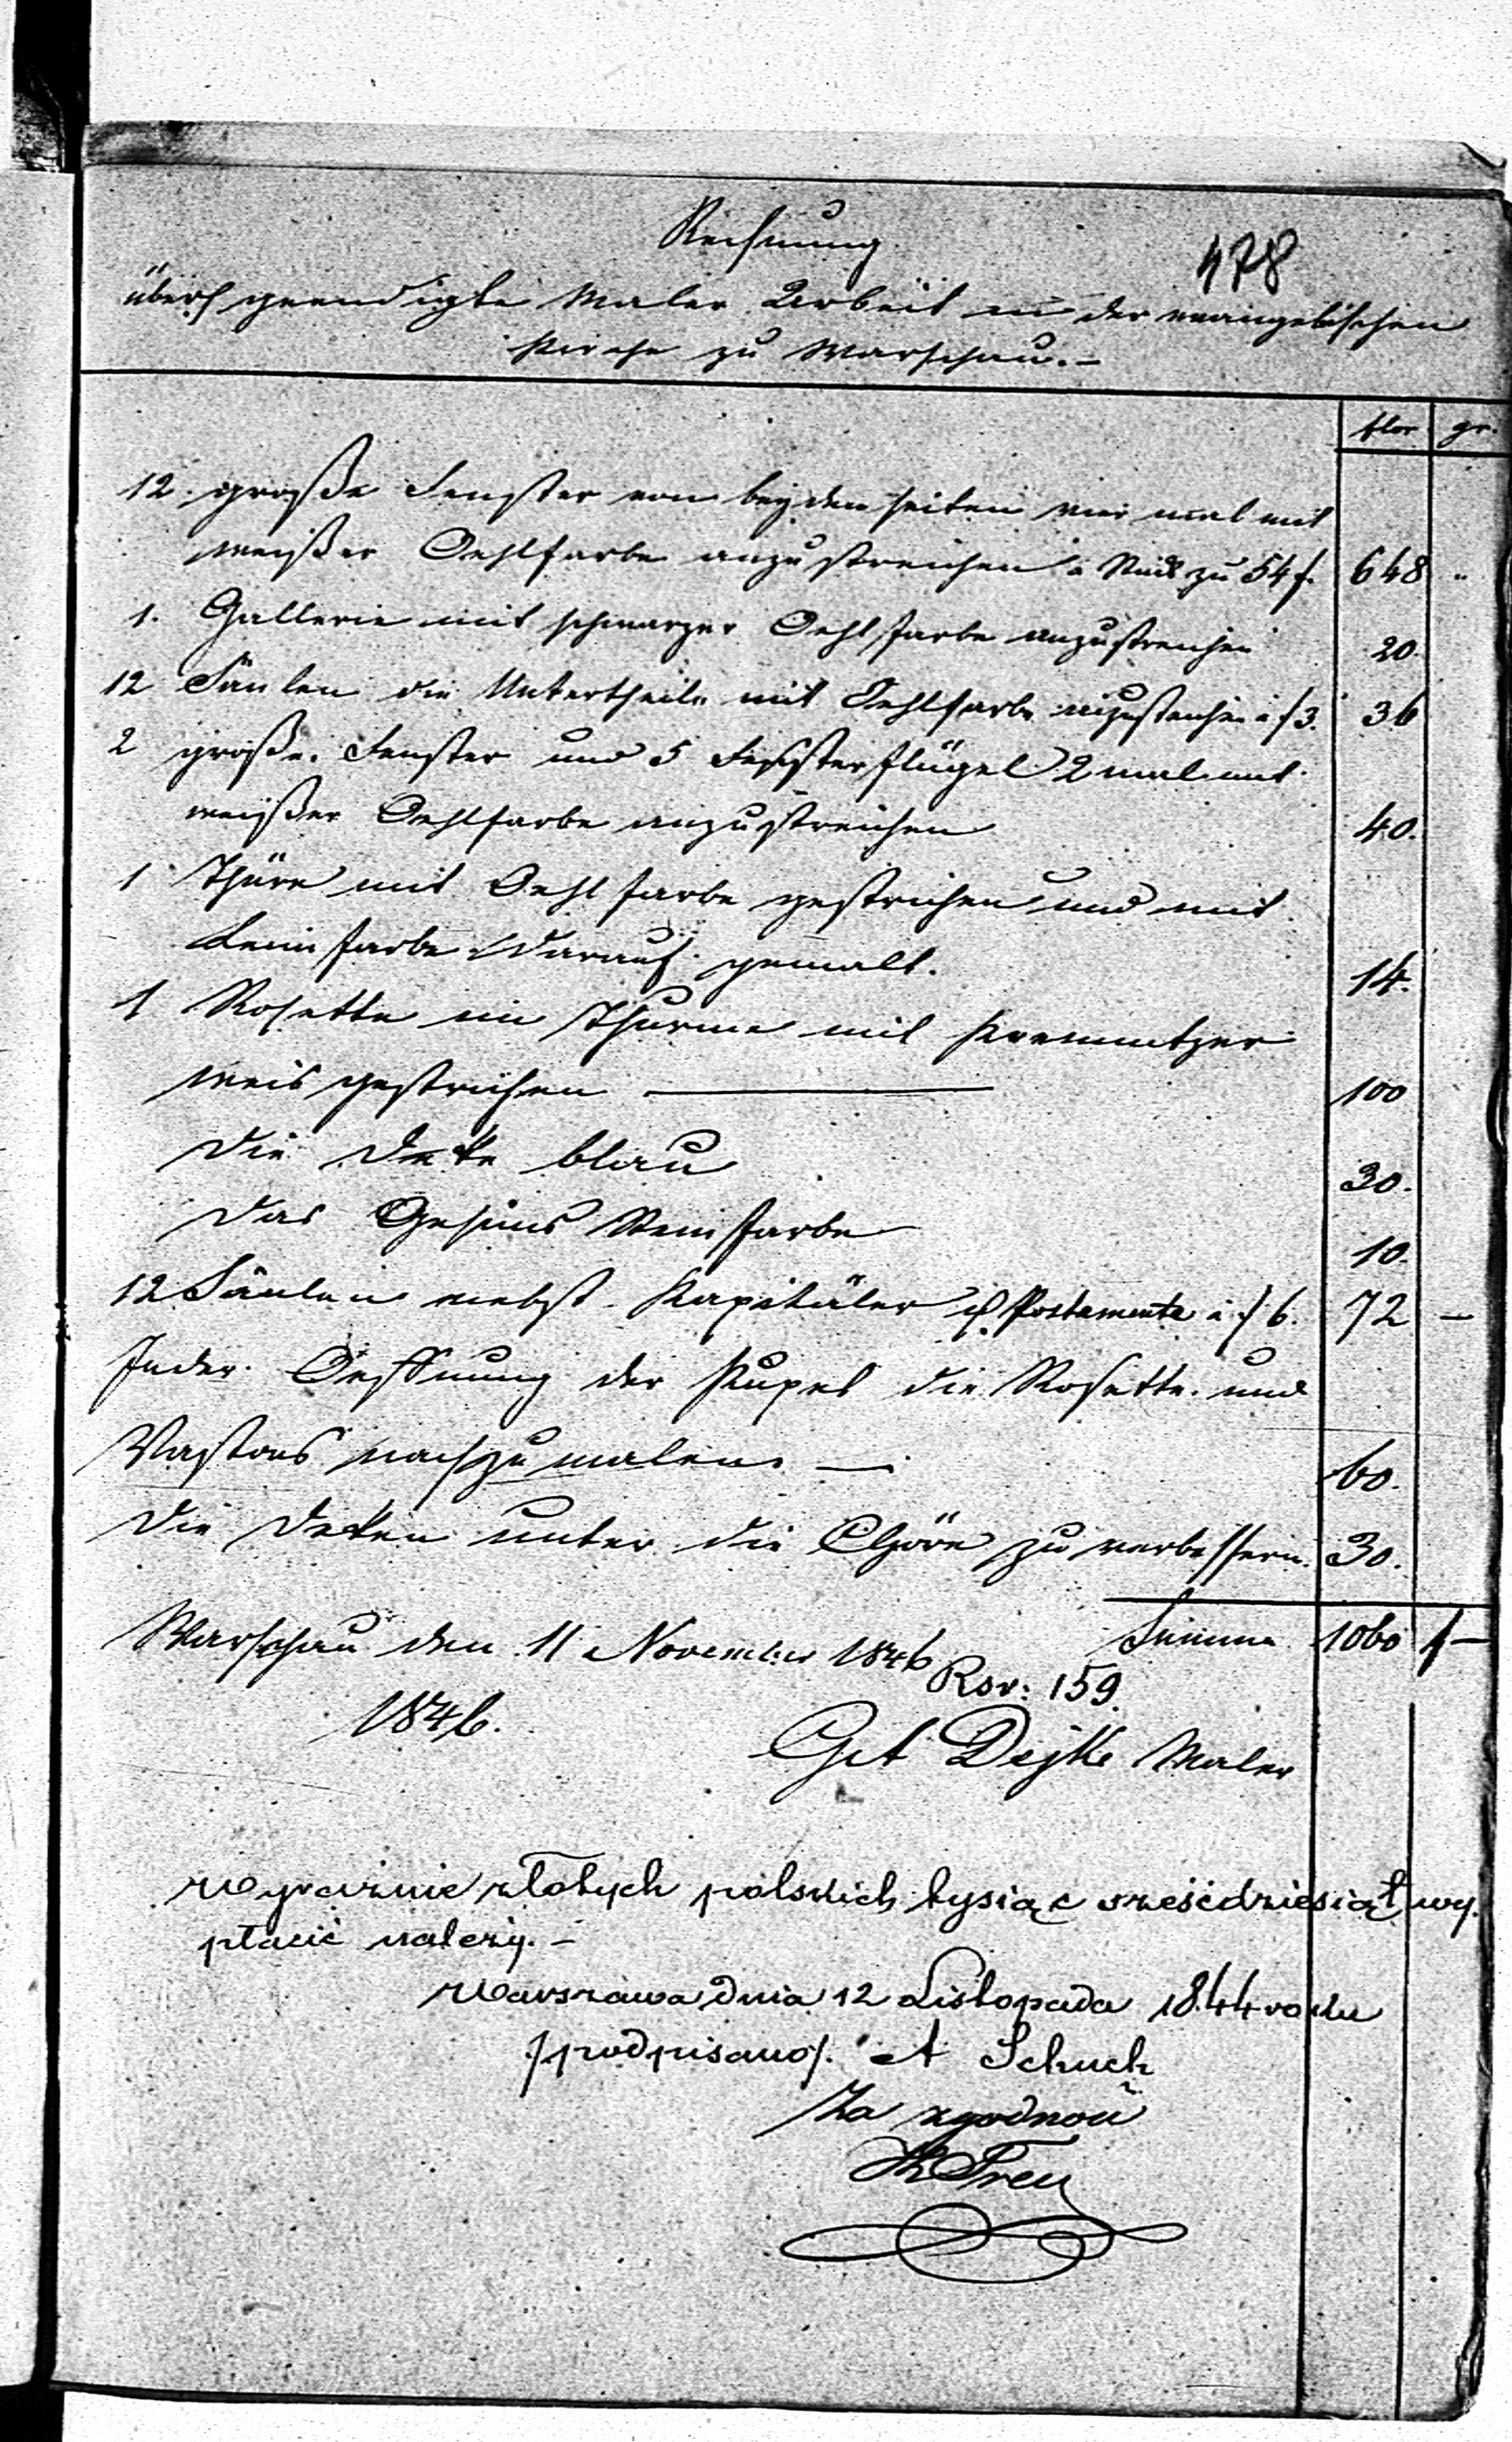 Rechnung
478
über geendigte Maler Arbeit in der evangelischen
Kirche zu Warschau.-
flor. gr.
12. große Fenster von beyden seiten vier mal mit
weißer Oehlfarbe anzustreichen a Stück zu 54 f. 648 "
1. Gallerie mit schwarzer Oehlfarbe anzustreichen 20.
12 Säulen die Untertheile mit Oehlfarbe anzustreichen a f 3. 36
2 große Fenster und 5 Fensterflügel 2 mal mit
weißer Oehlfarbe anzustreichen 40.
1 Thüre mit Oehlfarbe gestrichen und mit
Leimfarbe darauf gemalt. 14.
1 Rosette im Thurme mit Kremnitzer
weis gestrichen — 100
die Deke blau 30.
das Gesims Steinfarbe 10.
12 Säulen nebst Kapitäler Postamente a f 6. 72 –
In der Oeffnung der Kupel die Rosette und
nachzumalen — 60.
die Deken unter die Chöre zu verbessern. 30.
Summa 1060 f –
Warschau den 11 November 1846
Rsr: 159.
1846.
Maler
wyraźnie złotych polskich tysiąc sześćdziesiąt wy.
płacić należy. –
Warszawa dnia 12 Listopada 1844 roku
/podpisano/. A Schuch
Za zgodność